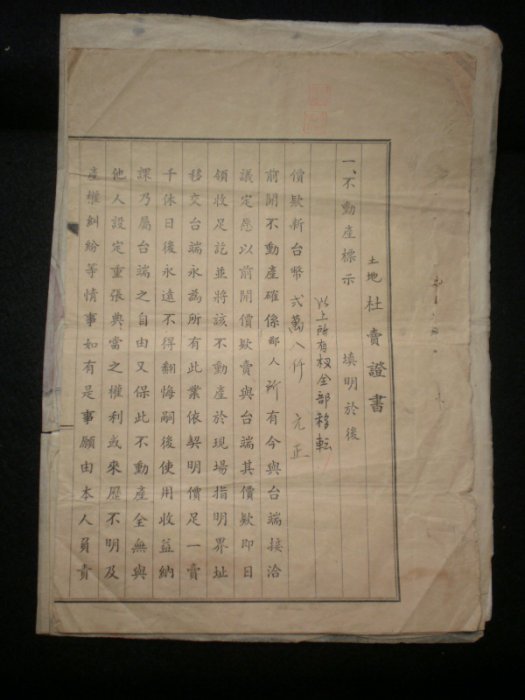 土地杜賣證書
一、不動產標示　填明於後
以上所有权全部移転
價款新台幣弍萬八仟元正
前開不動產確係鄙人所有今與台端接洽
議定愿以前開價款賣與台端其價款即日
領收足訖並將該不動產於現場指明界址
移交台端永為所有此業依契明價足一賣
千休日後永遠不得翻悔嗣後使用收益納
課乃屬台端之自由又保此不動產全無與
他人設定重張典當之權利或來歷不明及
產權糾紛等情事如有是事願由本人負責